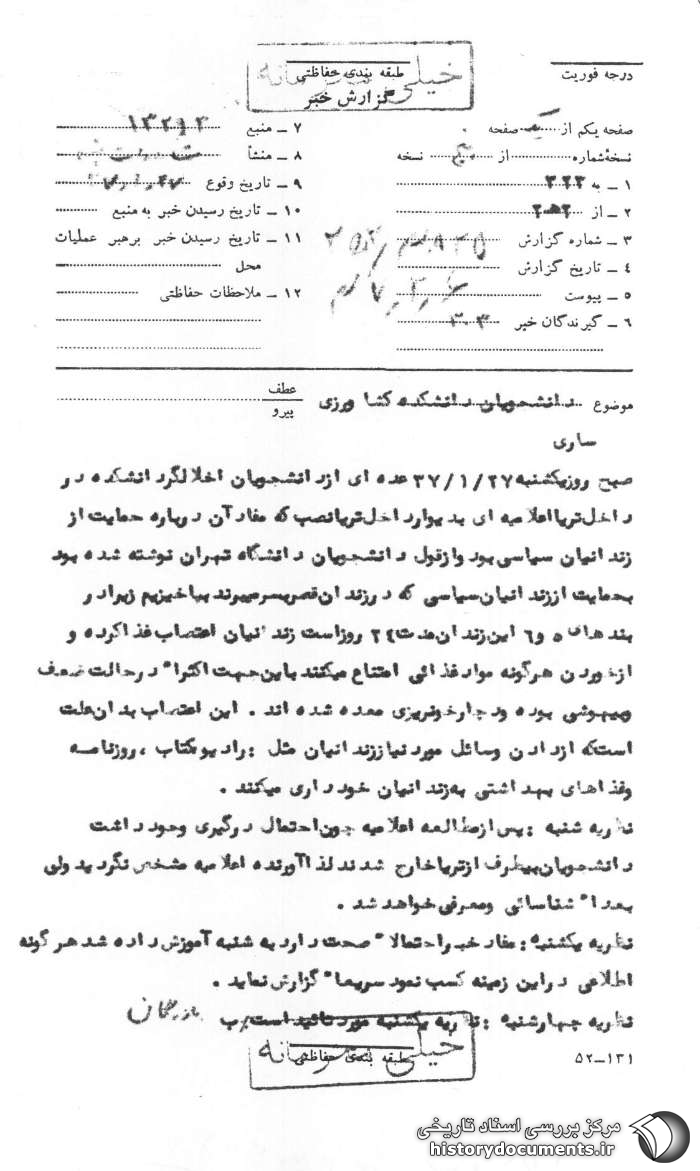 خیلی محرمانه
طبقه بندی حفاظتی
گزارش خبر
درجه فوریت
صفحه یکم از یک صفحه
نسخهٔ شماره از پنج نسخه
۱ ـ به ۳۲۲
۲ ـ از ۲ ه‍ ۲
۳ ـ شماره گزارش
۴ ـ تاریخ گزارش
۵ ـ پیوست
۶ ـ گیرندگان خبر ۳۰۳
۷ ـ منبع
۸ ـ منشأ
۹ ـ تاریخ وقوع
۱۰ ـ تاریخ رسیدن خبر به منبع
۱۱ ـ تاریخ رسیدن خبر برهبر عملیات
محل
۱۲ ـ ملاحظات حفاظتی
موضوع دانشجویان دانشکده کشاورزی
ساری
عطف
پیرو
صبح روز یکشنبه ۳۷/۱/۲۷ عده ای از دانشجویان اخلالگر دانشکده در
داخل تریا اعلامیه ای بدیوار داخل تریا نصب که مفاد آن درباره حمایت از
زندانیان سیاسی بود و از قول دانشجویان دانشگاه تهران نوشته شده بود
بحمایت از زندانیان سیاسی که در زندان قصر بسر میبرند بپاخیزیم زیرا در
بندهای ۵ و ۶ این زندان مدت ۲۴ روز است زندانیان اعتصاب غذا کرده و
از خوردن هرگونه مواد غذائی امتناع میکنند باین جهت اکثرا" در حالت ضعف
و بیهوشی بوده و دچار خونریزی معده شده اند . این اعتصاب بدان علت
است که از دادن وسائل مورد نیاز زندانیان مثل : رادیو کتاب ، روزنامه
و غذاهای بهداشتی به زندانیان خودداری میکنند .
نظریه شنبه : پس از مطالعه اعلامیه چون احتمال درگیری وجود داشت
دانشجویان بیطرف از تریا خارج شدند لذا آورنده اعلامیه مشخص نگردید ولی
بعدا" شناسائی و معرفی خواهد شد .
نظریه یکشنبه : مفاد خبر احتمالا" صحت دارد به شنبه آموزش داده شد هر گونه
اطلاعی در این زمینه کسب نمود سریعا" گزارش نماید .
نظریه چهارشنبه : نظریه یکشنبه مورد تائید است. ب
طبقه بندی حفاظتی
خیلی محرمانه
۵۲ــ۱۳۱
مرکز بررسی اسناد تاریخی
historydocuments.ir